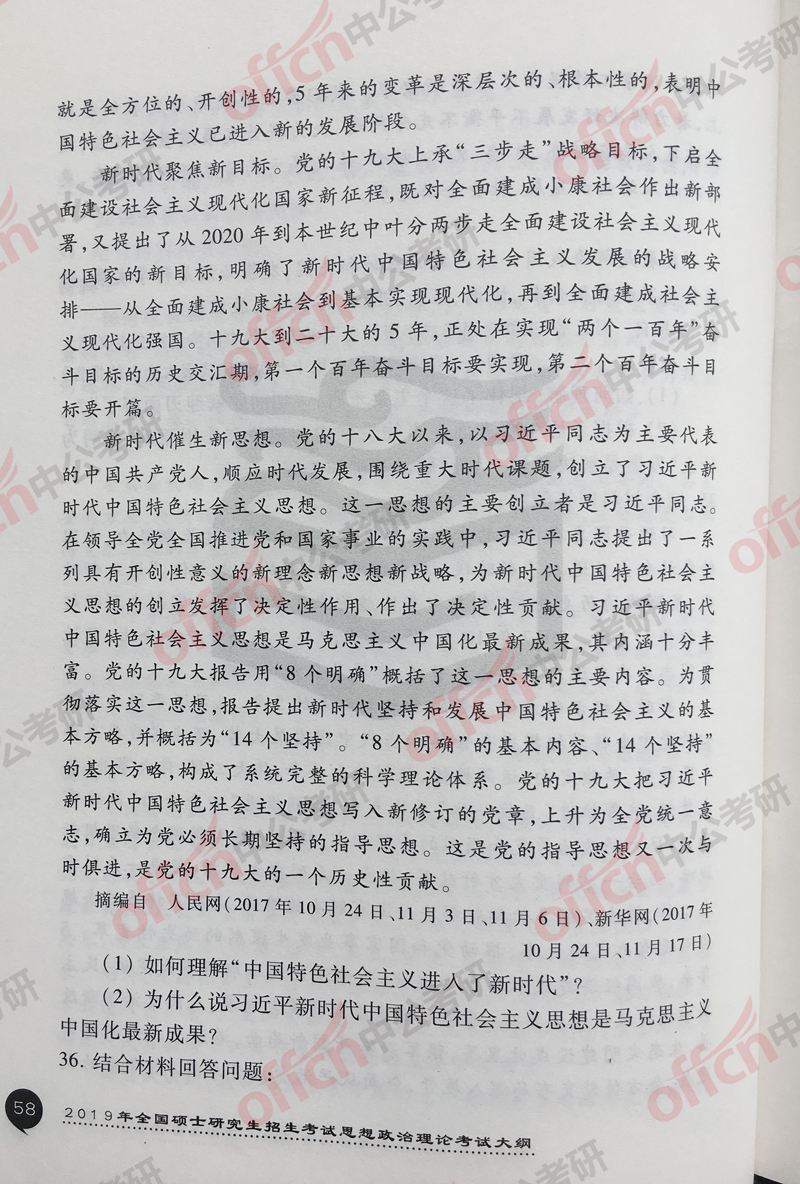 就是全方位的、开创性的,5年来的变革是深层次的、根本性的,表明中
国特色社会主义已进入新的发展阶段。
新时代聚焦新目标。党的十九大上承“三步走”战略目标,下启全
面建设社会主义现代化国家新征程,既对全面建成小康社会作出新部
署,又提出了从2020年到本世纪中叶分两步走全面建设社会主义现代
化国家的新目标,明确了新时代中国特色社会主义发展的战略安
排——从全面建成小康社会到基本实现现代化,再到全面建成社会主
义现代化强国。十九大到二十大的5年,正处在实现“两个一百年”奋
斗目标的历史交汇期,第一个百年奋斗目标要实现,第二个百年奋斗目
标要开篇。
新时代催生新思想。党的十八大以来,以习近平同志为主要代表
的中国共产党人,顺应时代发展,围绕重大时代课题,创立了习近平新
时代中国特色社会主义思想。这一思想的主要创立者是习近平同志。
在领导全党全国推进党和国家事业的实践中,习近平同志提出了一系
列具有开创性意义的新理念新思想新战略,为新时代中国特色社会主
义思想的创立发挥了决定性作用、作出了决定性贡献。习近平新时代
中国特色社会主义思想是马克思主义中国化最新成果,其内涵十分丰
富。党的十九大报告用“8个明确”概括了这一思想的主要内容。为贯
彻落实这一思想,报告提出新时代坚持和发展中国特色社会主义的基
本方略,并概括为“14个坚持”。“8个明确”的基本内容、“14个坚持”
的基本方略,构成了系统完整的科学理论体系。党的十九大把习近平
新时代中国特色社会主义思想写入新修订的党章,上升为全党统一意
志,确立为党必须长期坚持的指导思想。这是党的指导思想又一次与
时俱进,是党的十九大的一个历史性贡献。
摘编自 人民网(2017年10月24日、11月3日、11月6日)、新华网(2017年
10月24日、11月17日)
(1) 如何理解“中国特色社会主义进入了新时代”?
(2) 为什么说习近平新时代中国特色社会主义思想是马克思主义
中国化最新成果?
36. 结合材料回答问题:
58
2019年全国硕士研究生招生考试思想政治理论考试大纲
offcn中公考研